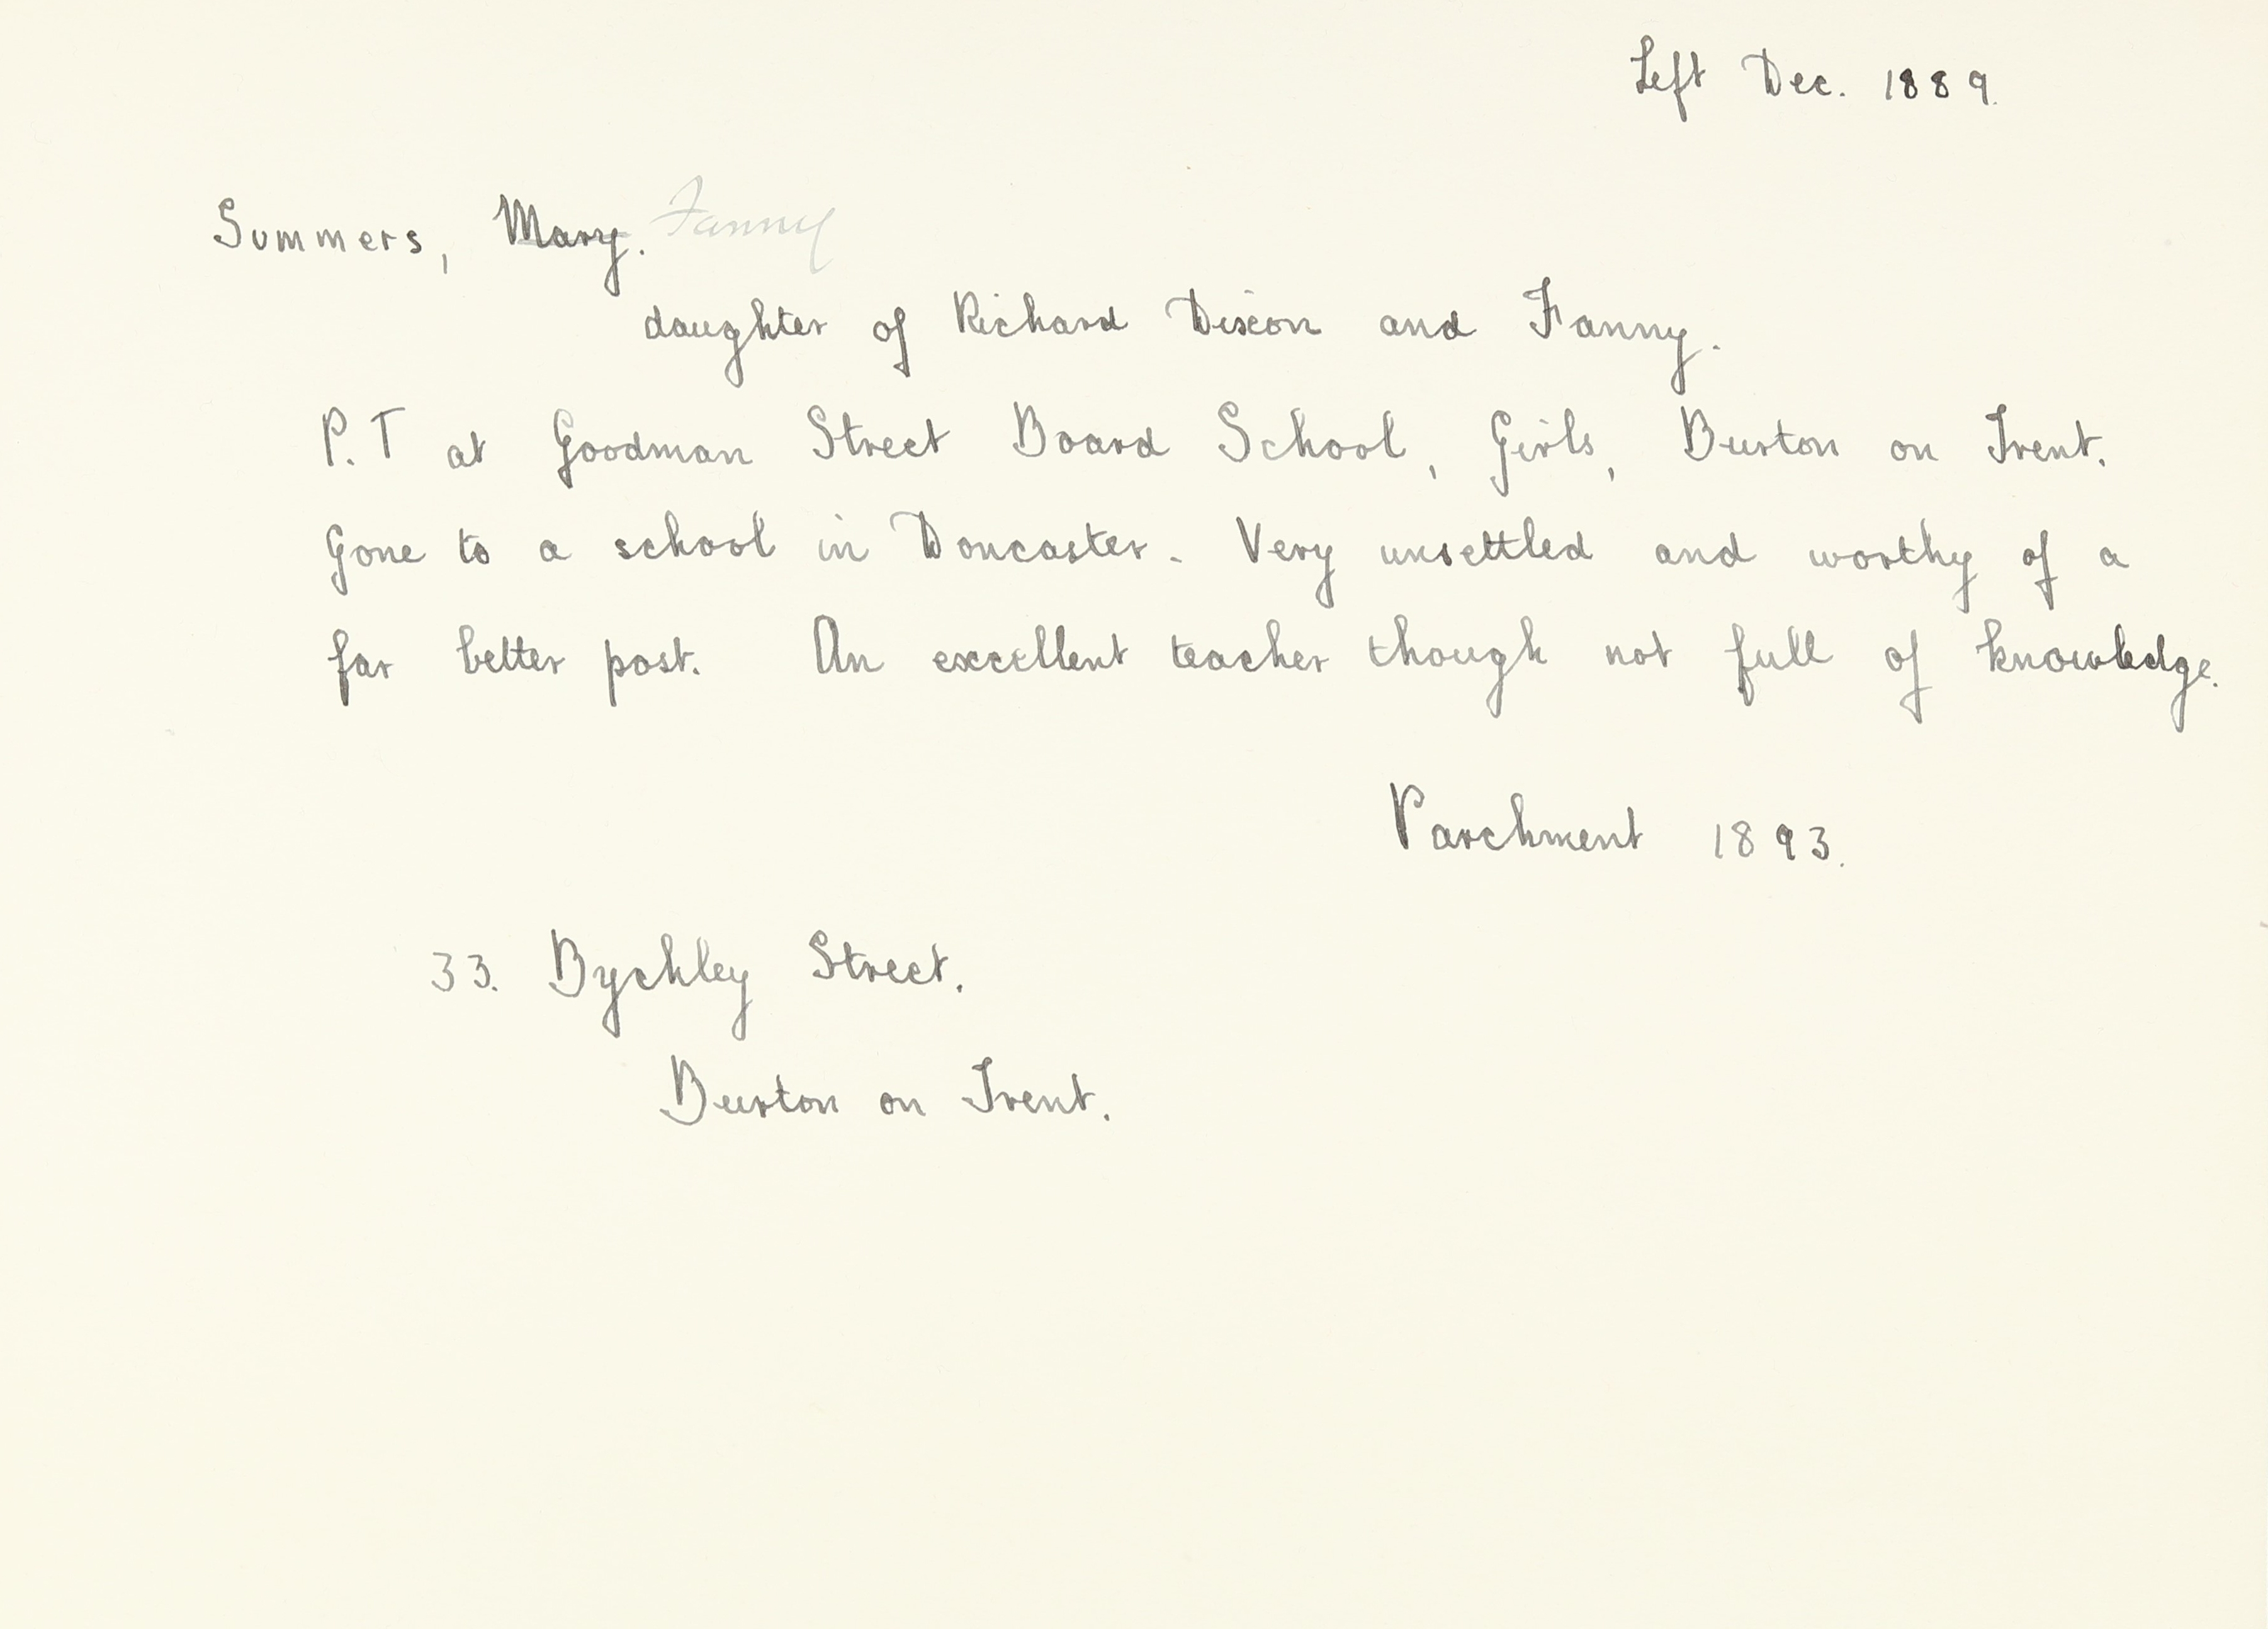 Left Dec. 1889.
Summers, Mary. Fanny
daughter of Richard Dixon and Fanny.
P.T at Goodman Street Board School, Girls, Burton on Trent.
Gone to a school in Doncaster. Very unsettled and worthy of a
far better post. An excellent teacher though not full of knowledge.
Parchment 1893.
33. Bychley Street.
Burton on Trent.